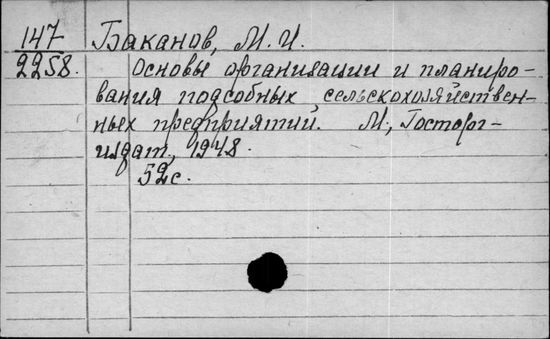 147 Баканов, М. И.
2258. Основы организации и планиро-
вания подсобных сельскохозяйствен-
ных предприятий. М., Госторг-
издат, 1948.
52с.